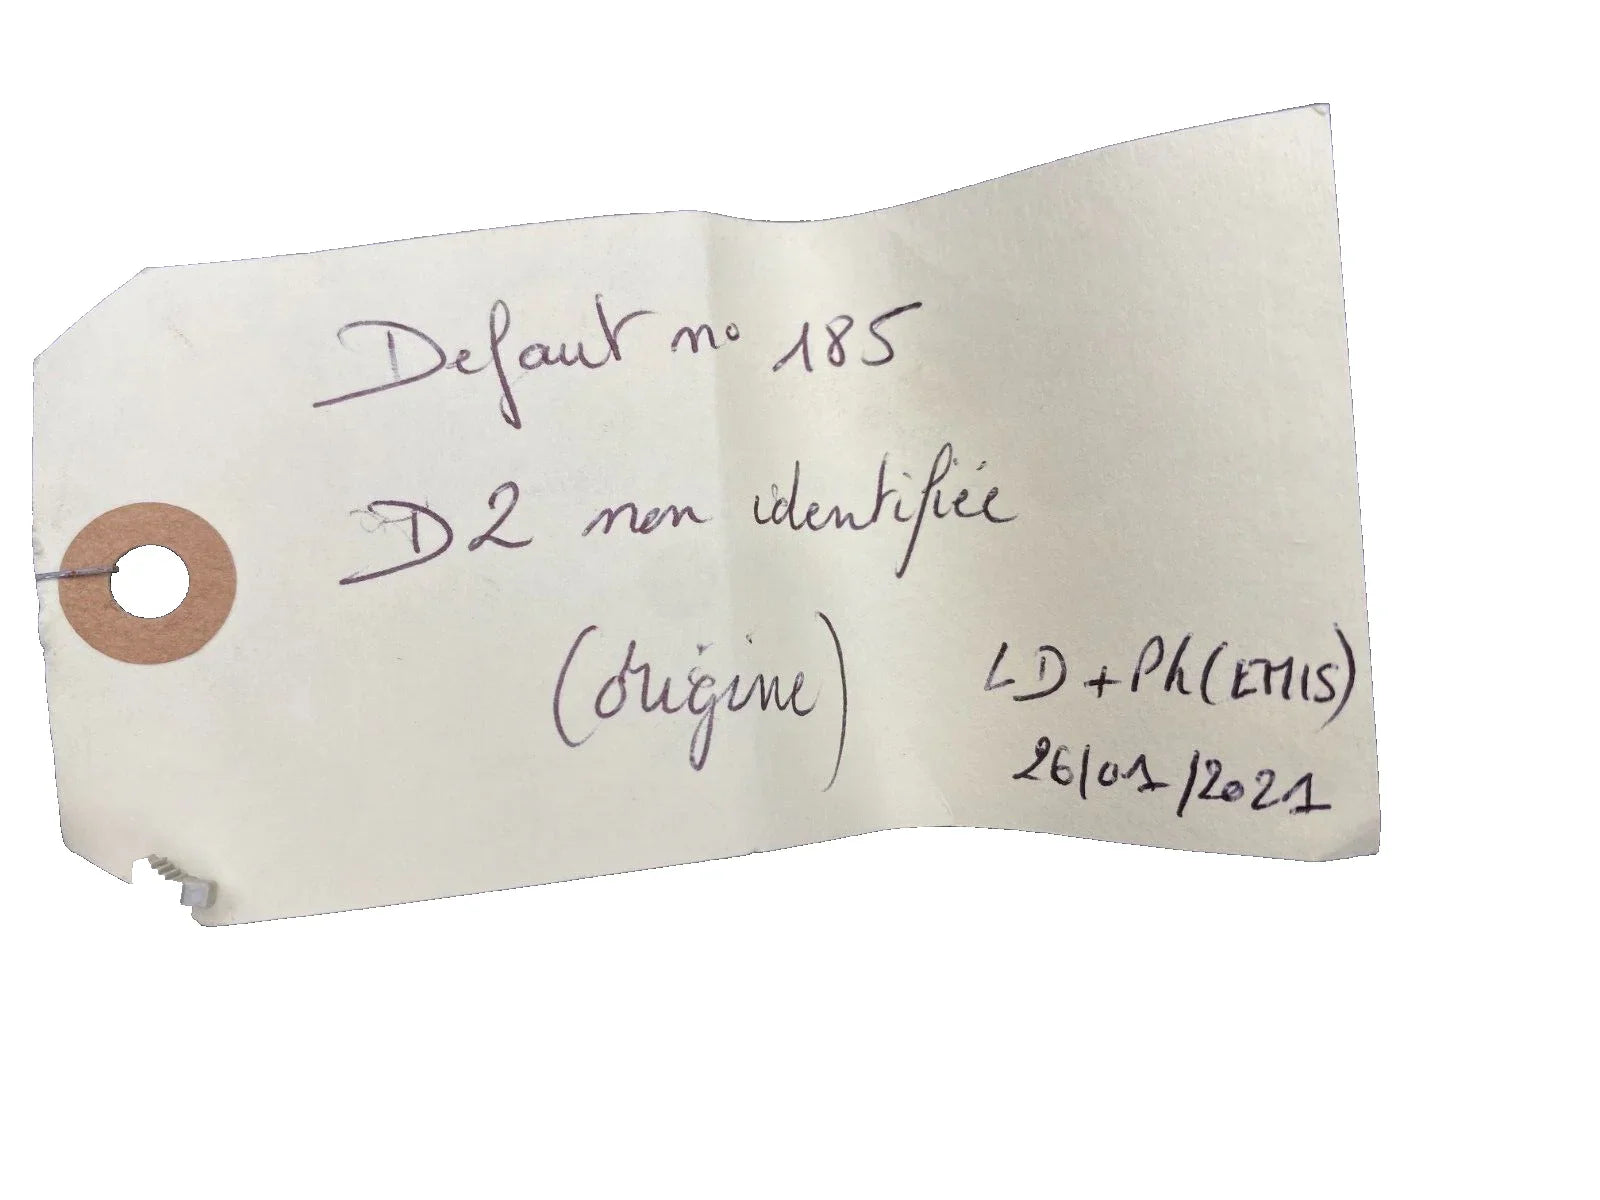 Defaut no 185
D2 non identifiée
(origine)
LD + Ph (EMIS)
26/01/2021